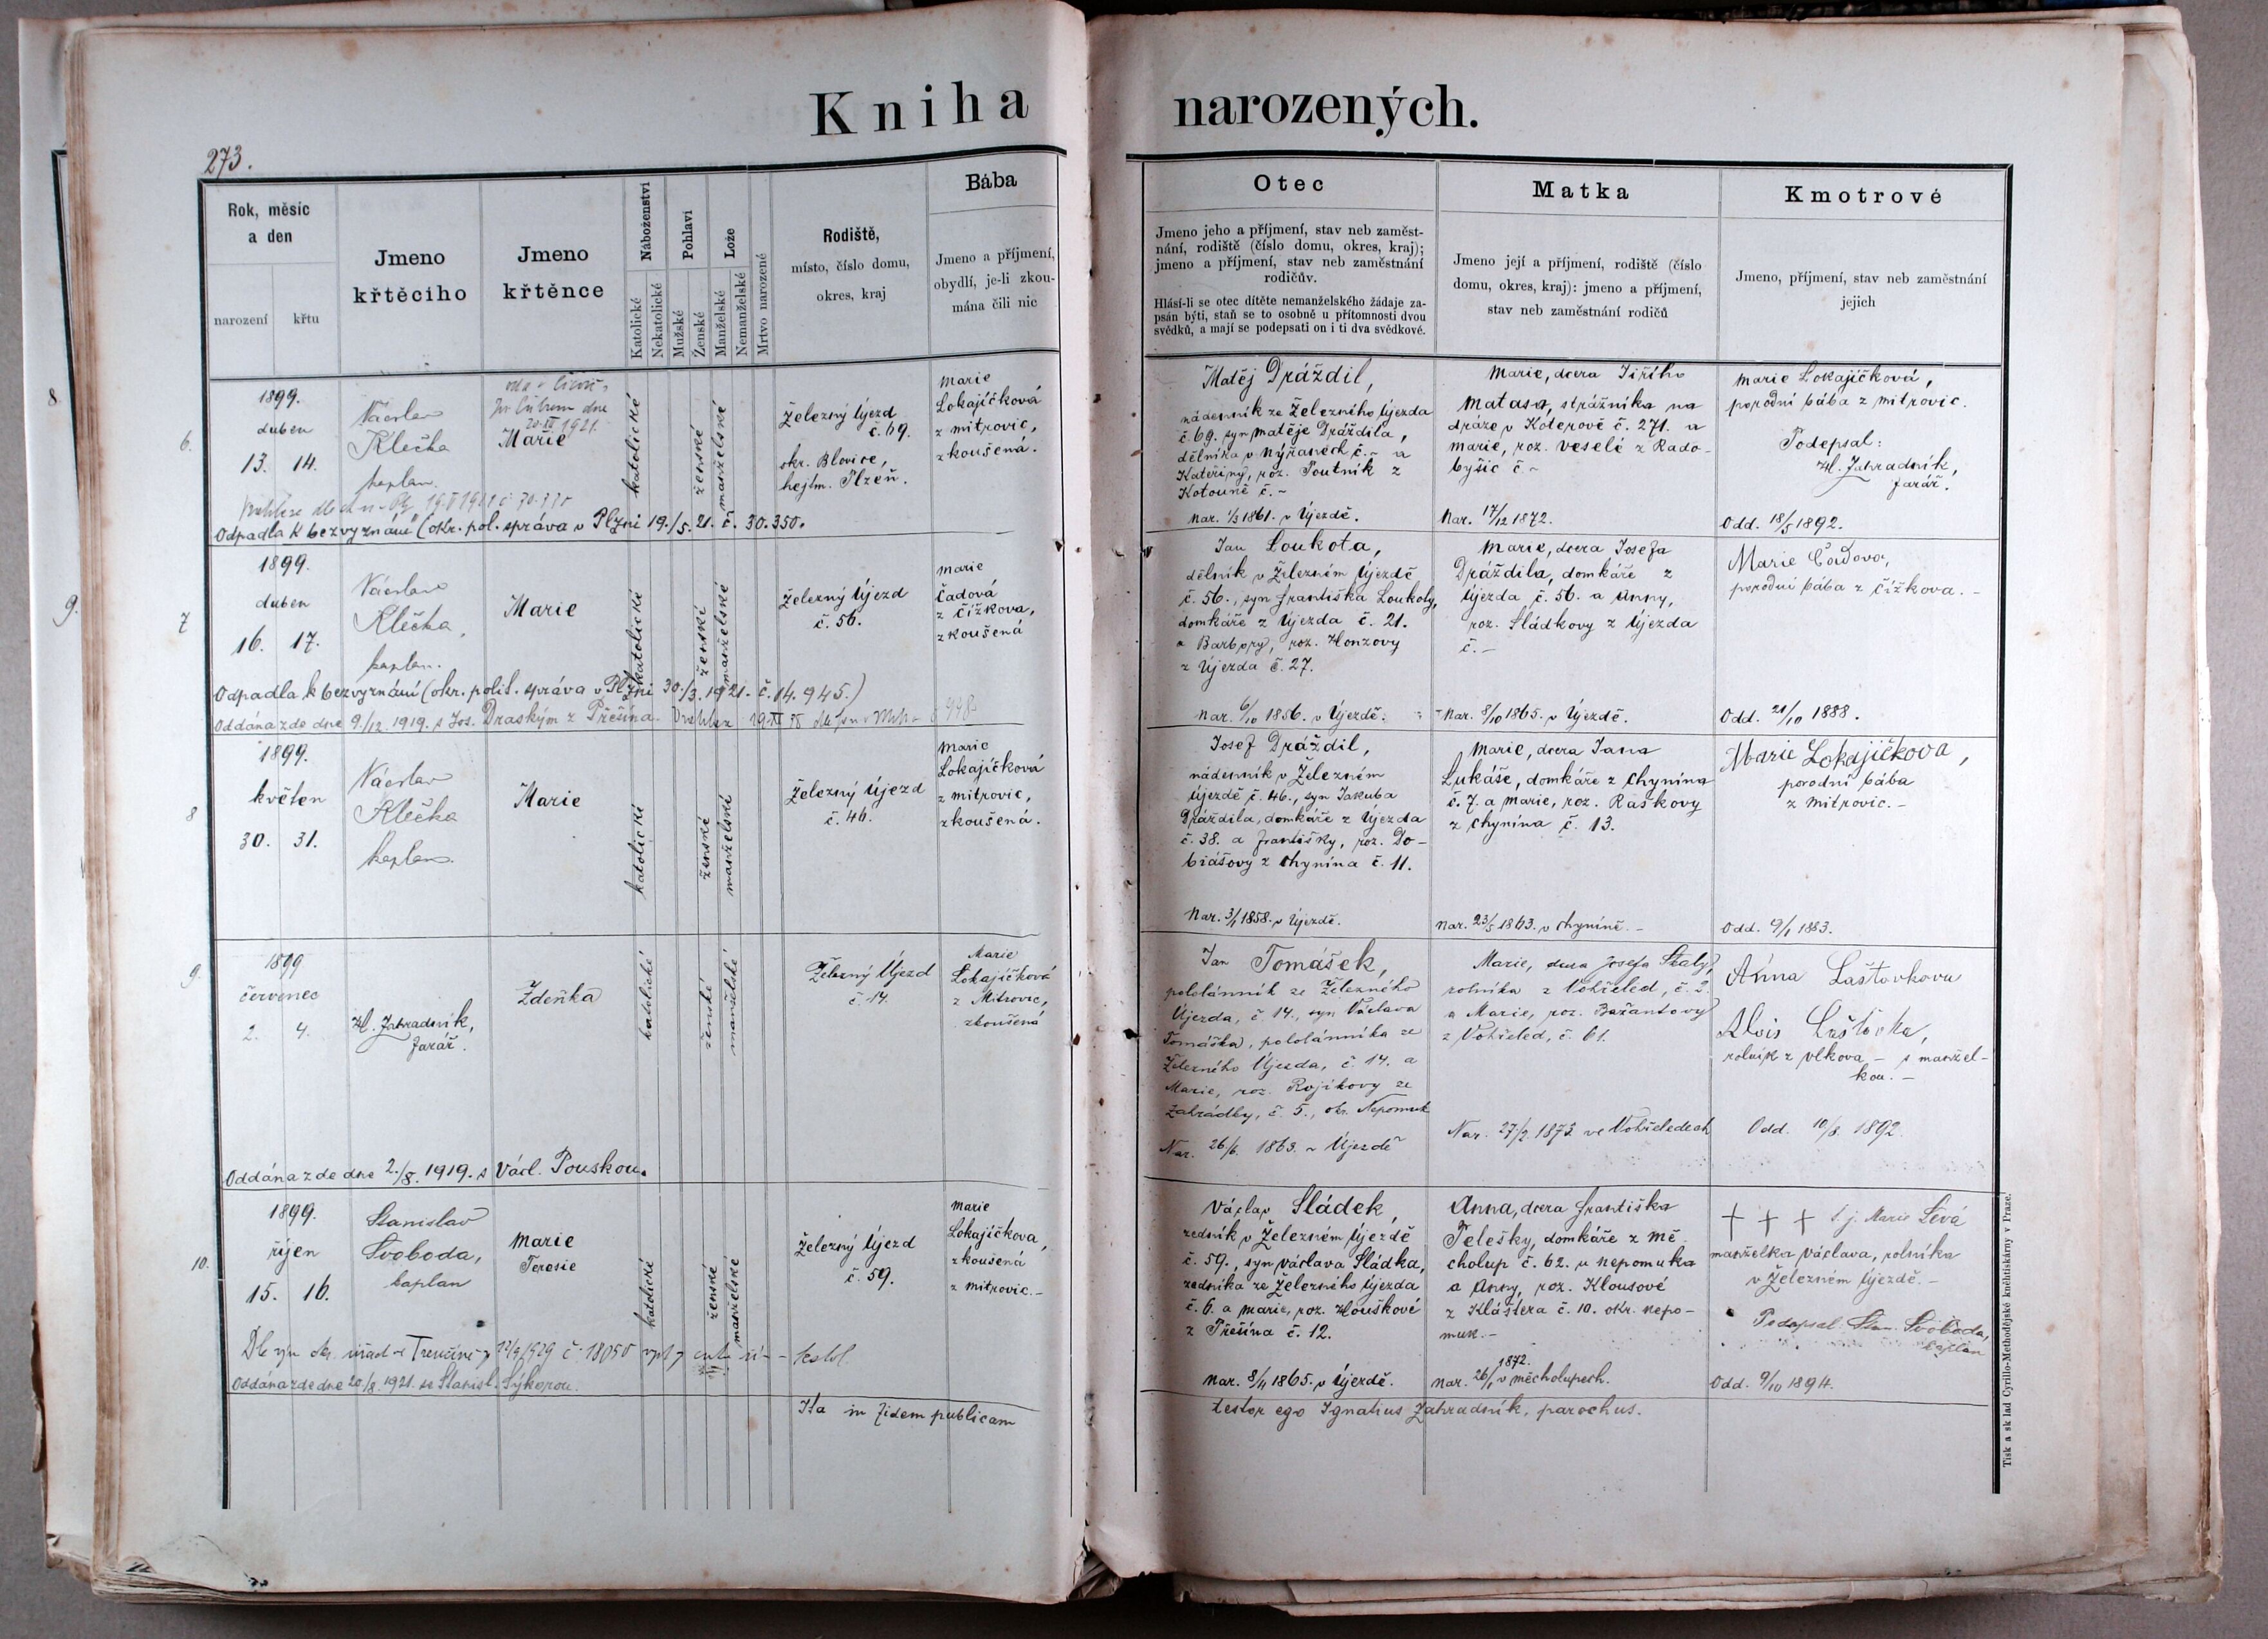 Kniha narozených.
273.
Rok, měsíc
a den
narození
křtu
Jmeno
křtěcího
Jmeno
křtěnce
Náboženství
Katolické
Nekatolické
Pohlaví
Mužské
Ženské
Lože
Manželské
Nemanželské
Mrtvo narozené
Rodiště,
místo, číslo domu,
okres, kraj
Bába
Jmeno a příjmení,
obydlí, je-li zkou-
mána čili nic
Otec
Jmeno jeho a příjmení, stav neb zaměst-
nání, rodiště (číslo domu, okres, kraj);
jmeno a příjmení, stav neb zaměstnání
rodičův.
Hlásí-li se otec dítěte nemanželského žádaje za-
psán býti, staň se to osobně u přítomnosti dvou
svědků, a mají se podepsati on i ti dva svědkové.
Matka
Jmeno její a příjmení, rodiště (číslo
domu, okres, kraj): jmeno a příjmení,
stav neb zaměstnání rodičů
Kmotrové
Jmeno, příjmení, stav neb zaměstnání
jejich
8
6.
1899.
duben
13. 14.
Václav
Klečka
kaplan.
1921.
Marie
katolické
ženské
manželské
Železný Újezd
č. 69.
okr. Blovice,
hejtm. Plzeň.
Marie
Lokajíčková
z Mitrovic,
zkoušená.
Odpadla k bezvyznání (okr. pol. správa v Plzni 19./5. 21. č. 30.350.
Matěj Dráždil,
nádenník ze Železného Újezda
č. 69. syn Matěje Dráždila,
dělníka v Nýřanech č. – a
Kateřiny, roz. Poutník z
Kotouně č. –
Nar. 1/3 1861. v Újezdě.
Marie, dcera Jiřího
Matasa, strážníka na
dráze v Koterově č. 271. a
Marie, roz. Veselé z Rado-
byšic č. –
Nar. 17/12 1872.
Marie Lokajíčková,
porodní bába z Mitrovic.
Podepsal:
Hl. Zahradník,
farář.
Odd. 18/5 1892.
9.
7
1899.
duben
16. 17.
Václav
Klečka,
kaplan.
Marie
katolické
ženské
manželské
Železný Újezd
č. 56.
Marie
Čadová
z Čížkova,
zkoušená
Odpadla k bezvyznání (okr. polit. správa v Plzni 30./3. 1921. č. 14.945.)
Oddána zde dne 9./12. 1919. s Jos. Draským z Přešína.
Jan Loukota,
dělník v Železném Újezdě
č. 56., syn Františka Loukoty,
domkáře z Újezda č. 21.
a Barbory, roz. Honzovy
z Újezda č. 27.
Nar. 6/10 1856. v Újezdě.
Marie, dcera Josefa
Dráždila, domkáře z
Újezda č. 56. a Anny,
roz. Sládkovy z Újezda
č. –
Nar. 8/10 1865. v Újezdě.
Marie Čadova,
porodní bába z Čížkova. –
Odd. 21/10 1888.
8
1899.
květen
30. 31.
Václav
Klečka
kaplan.
Marie
katolické
ženské
manželské
Železný Újezd
č. 46.
Marie
Lokajíčková
z Mitrovic,
zkoušená.
Josef Dráždil,
nádenník v Železném
Újezdě č. 46., syn Jakuba
Dráždila, domkáře z Újezda
č. 38. a Františky, roz. Do-
biášovy z Chynína č. 11.
Nar. 3/1 1858. v Újezdě.
Marie, dcera Jana
Lukáše, domkáře z Chynína
č. 7. a Marie, roz. Raškovy
z Chynína č. 13.
Nar. 23/5 1863. v Chyníně. –
Marie Lokajíčkova,
porodní bába
z Mitrovic. –
Odd. 9/1 1883.
9.
1899
červenec
2. 4.
Hl. Zahradník,
farář.
Zdeňka
katolické
ženské
manželské
Železný Újezd
č. 14.
Marie
Lokajíčková
z Mitrovic,
zkoušená
Oddána zde dne 2./8. 1919. s Václ. Pouskou.
Jan Tomášek,
pololánník ze Železného
Újezda, č. 14., syn Václava
Tomáška, pololánníka ze
Železného Újezda, č. 14. a
Marie, roz. Rojíkovy ze
Zahrádky, č. 5., okr. Nepomuk
Nar. 26/6. 1863. v Újezdě
Marie, dcera Josefa Skaly,
rolníka z Vohřeled, č. 2.
a Marie, roz. Bažantovy
z Vohřeled, č. 61.
Nar. 27/2. 1873 ve Vohřeledech
Anna Laštovkova
Alois Laštovka,
rolník z Vlkova – s manžel-
kou. –
Odd. 10/8. 1892.
10.
1899.
říjen
15. 16.
Stanislav
Svoboda,
kaplan
Marie
Teresie
katolické
ženské
manželské
Železný Újezd
č. 59.
Marie
Lokajíčkova,
zkoušená
z Mitrovic. –
1929 č. 18050
Oddána zde dne 20/8. 1921. se Stanisl. Sýkorou.
Václav Sládek,
zedník v Železném Újezdě
č. 59., syn Václava Sládka,
zedníka ze Železného Újezda
č. 6. a Marie, roz. Houškové
z Přešína č. 12.
Nar. 8/11 1865. v Újezdě.
Anna, dcera Františka
Pelešky, domkáře z Mě-
cholup č. 62. u Nepomuka
a Anny, roz. Klousové
z Kláštera č. 10. okr. Nepo-
muk. –
1872.
Nar. 26/1 v Měcholupech.
† † † t. j. Marie Levá
manželka Václava, rolníka
v Železném Újezdě. –
Podepsal Stan. Svoboda,
kaplan
Odd. 9/10 1894.
Ita in fidem publicam testor ego Ignatius Zahradník, parochus.
Tisk a sklad Cyrillo-Methodějské knihtiskárny v Praze.